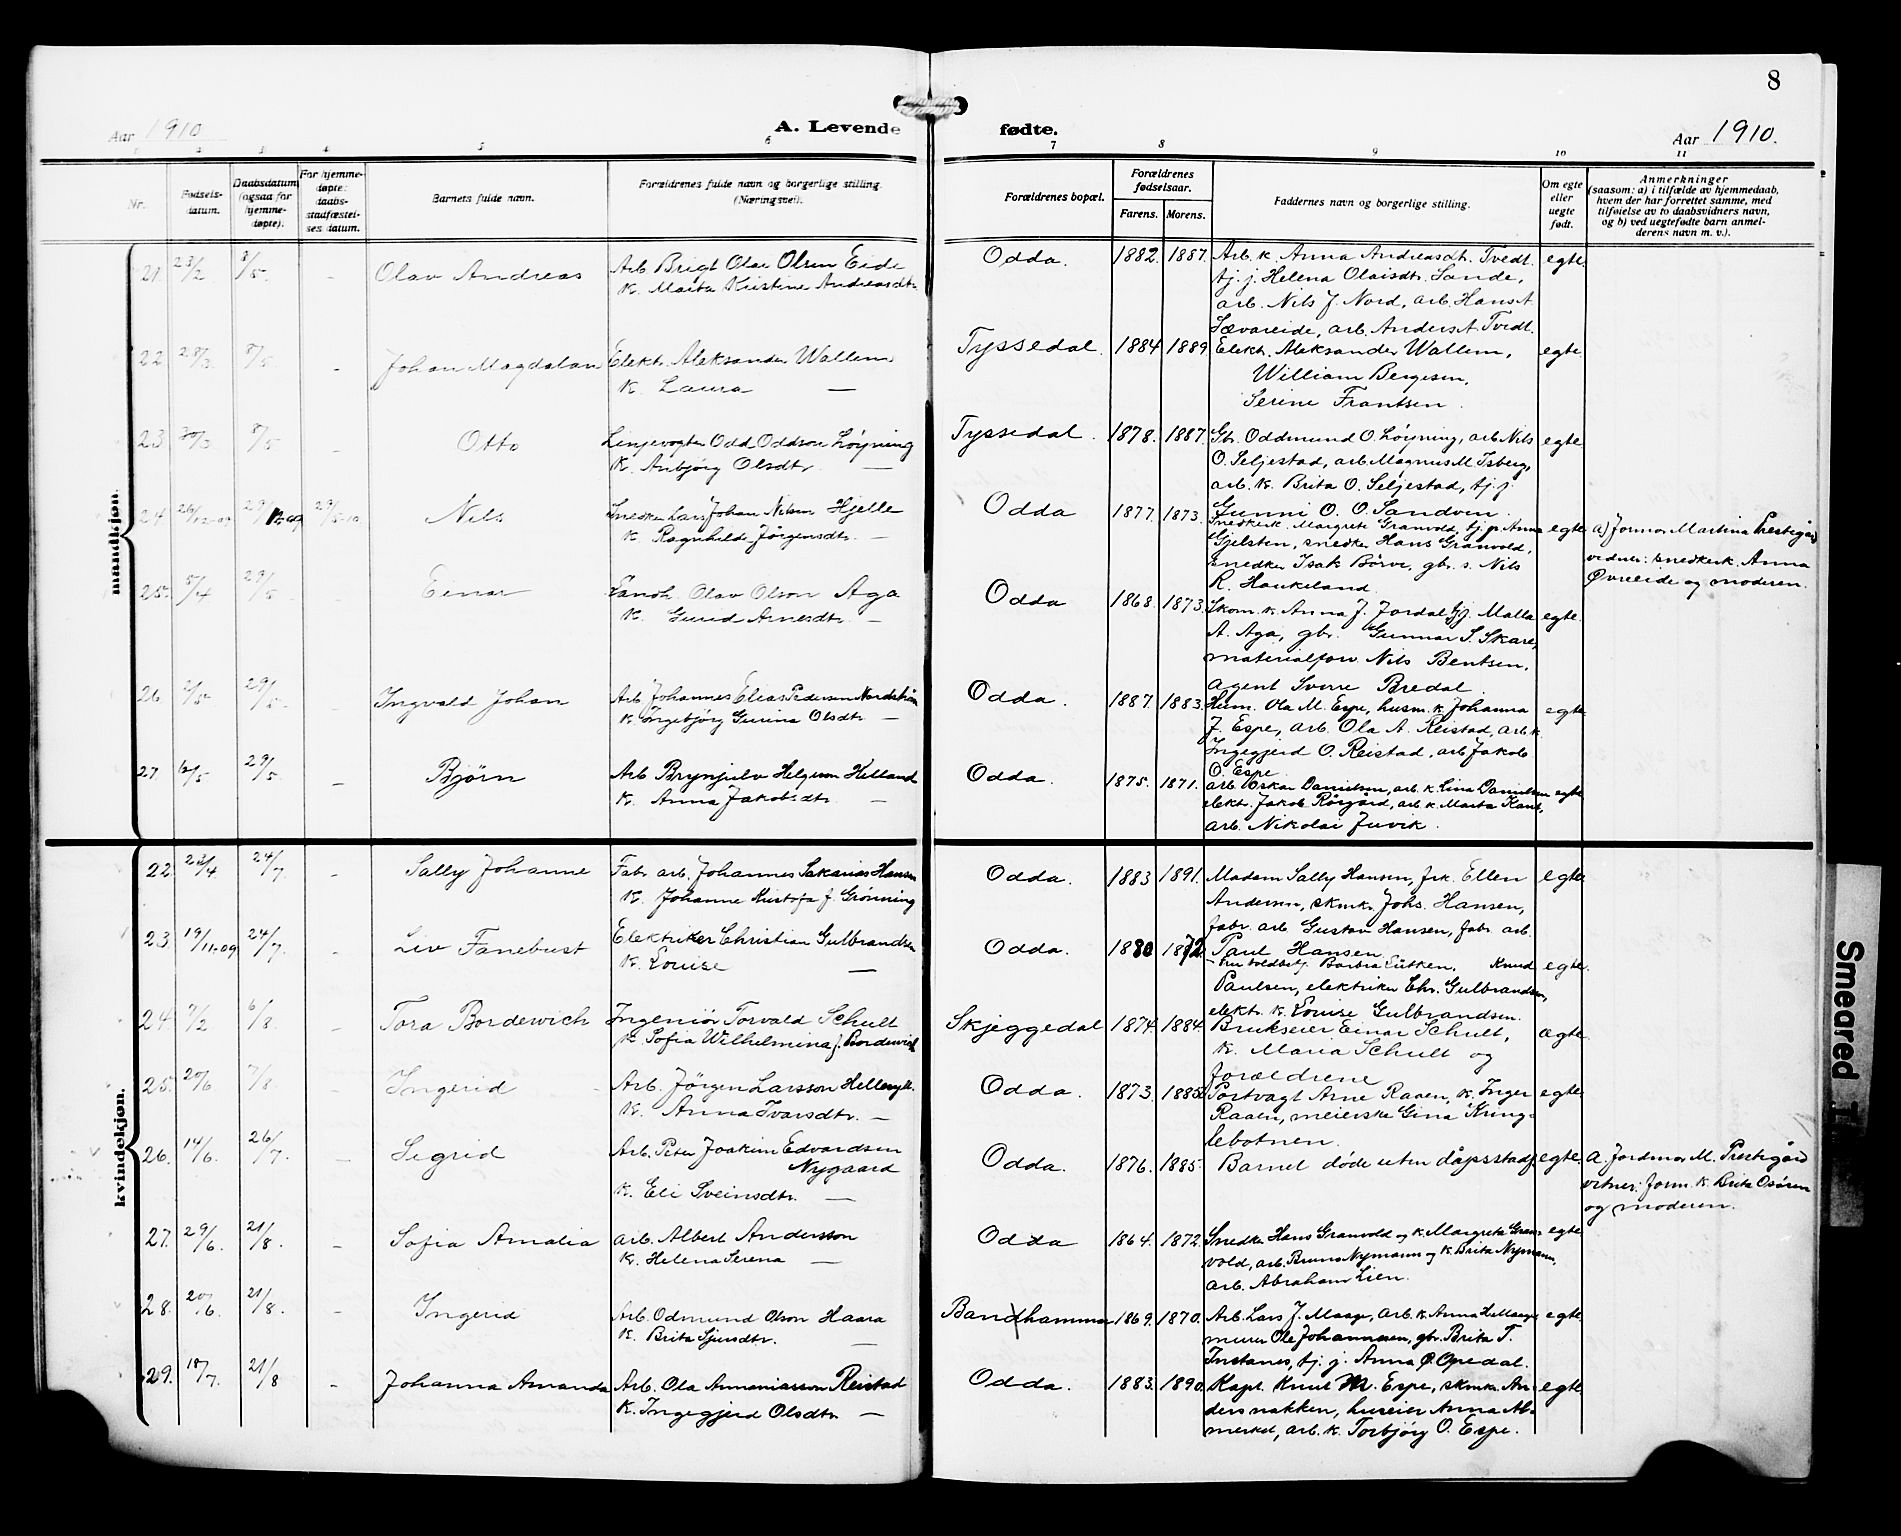 8
Aar 1910
A. Levende fødte.
Aar 1910.
1 2 3 4 5 6 7 8 9 10 11
Nr.
Fødsels-
datum.
Daabsdatum
(ogsaa for
hjemme-
døpte).
For hjemme-
døpte:
daabs-
stadfæstel-
ses datum.
Barnets fulde navn.
Forældrenes fulde navn og borgerlige stilling.
(Næringsvei).
Forældrenes bopæl.
Forældrenes
fødselsaar.
Farens. Morens.
Faddernes navn og borgerlige stilling.
Om egte
eller
uegte
født.
Anmerkninger
(saasom: a) i tilfælde av hjemmedaab,
hvem der har forrettet samme, med
tilføielse av to daabsvidners navn,
og b) ved uegtefødte barn anmel-
derens navn m. v.).
mandkjøn.
21. 23/2 8/5 - Olav Andreas
Arb. Brigt Olai Olsen Eide
K. Marta Kristine Andreasdtr.
Odda. 1882. 1887.
Arb. k. Anna Andreasdt. Tvedt.
tj. j. Helena Olaisdtr. Sande,
arb. Nils J. Nord, arb. Hans A.
Sævareide, arb. Anders A. Tvedt.
egte.
22. 28/3 8/5 - Johan Magdalon
Elektr. Aleksander Wallem
K. Laura —
Tyssedal. 1884 1889
Elektr. Aleksander Wallem,
William Bergesen,
Serine Frantsen.
egte.
23 30/3 8/5 - Otto
Linjevogter Odd Oddson Löyning
K. Anbjörg Olsdtr. —
Tyssedal. 1878. 1887.
Gb. Oddmund O. Löyning, arb. Nils
O. Seljestad, arb. Magnus M. Isberg,
arb. k. Brita O. Seljestad, tj. j.
Gunni O. O. Sandven.
egte
24 26/12-09 29/12-09 29/5-10 Nils
Snedker Lars Johan Nilsen Hjelle
K. Ragnhilde Jörgensdtr. —
Odda 1877. 1873.
Snedkerk. Margrete Granvold, tj. p. Anna
Gjelsten, snedker Hans Granvold,
snedker Isak Börve, gbr. s. Nils
R. Haukeland.
egte
a) Jormor Martina Prestegård
vidner: snedkerk. Anna
Øvreeide og moderen.
25. 5/4 29/5 - Einar
Landh. Olav Olson Aga
K. Gurid Arnesdtr. —
Odda 1868. 1873.
Skom. k. Anna J. Jordal, tj. j. Malla
A. Aga, gbr. Gunnar S. Skare,
materialforv. Nils Bentsen,
agent Sverre Bredal.
egte.
26 2/5 29/5. - Ingvald Johan
Arb. Johannes Elias Pedersen Nordström
K. Ingebjörg Gurina Olsdtr. —
Odda. 1887. 1883.
Husm. Ola M. Espe, husm. k. Johanna
J. Espe, arb. Ola A. Reistad, arb. k.
Ingegjerd O. Reistad, arb. Jakob
O. Espe.
egte
27. 12/5 29/5 - Bjørn
Arb. Brynjulv Helgeson Helland
K. Anna Jakobsdtr. —
Odda. 1875. 1871.
arb. Oskar Danielsen, arb. k. Lina Danielsen
elektr. Jakob Rösgård, arb. k. Marta Kant,
arb. Nikolai Juvik.
egte
kvindekjøn.
22. 23/4. 24/7 - Sally Johanne
Fabr. arb. Johannes Sakarias Hansen
K. Johanne Kristofa f. Grönning
Odda. 1883 1891.
Madam Sally Hansen, frk. Ellen
Andersen, skmkr. Johs. Hansen,
fabr. arb. Gustav Hansen, fabr. arb.
Paul Hansen.
egte
23. 19/11-09 24/7. - Liv Fanebust
Elektriker Christian Gulbrandsen
K. Louise —
Odda. 1880 1872
Borbra Lütken, Knud
Paulsen, elektriker Chr. Gulbrandsen,
elektr. k. Louise Gulbrandsen.
egte.
24 7/2 6/8 - Tora Bordewich
Ingeniör Torvald Schult
K. Sofia Wilhelmina f. Bordewich
Skjeggedal 1874. 1884.
Brukseier Einar Schult,
K. Maria Schult og
forældrene
ægte
25. 20/6 7/8. - Ingerid
Arb. Jörgen Larsson Hellesylt.
K. Anna Ivarsdtr. —
Odda. 1873. 1885.
Portvagt Arne Raaen, k. Inger
Raaen, meierske Gina Kring-
lebotnen.
egte
26. 14/6. 26/7. - Sigrid
Arb. Peter Joakim Edvardsen
Nygaard
K. Eli Sveinsdtr. —
Odda. 1876. 1885.
Barnet døde uten dåpsstadf.
egte.
a. Jordmor M. Prestegård
vitner: Jorm. k. Brita Osören
og moderen.
27. 29/6. 21/8. - Sofia Amalia
arb. Albert Andersson
K. Helena Serena —
Odda 1864. 1872.
Snedker Hans Granvold og k. Margreta Gran-
vold, arb. Bruno Nymann og k. Brita Nymann,
arb. Abraham Lien.
egte
28. 20/6. 21/8. - Ingerid
Arb. Odmund Olson Haara
K. Brita Sjursdtr. —
Bandhammar 1869. 1870.
Arb. Lars J. Maage, Arb. k. Anna H. Maage,
murer Ole Johannesen, gbr. Brita T.
Instanes, tj. j. Anna O. Opedal.
egte
29. 18/7. 21/8 - Johanna Amanda
Arb. Ola Ammeniasson Reistad
K. Ingegjerd Olsdtr. —
Odda. 1883. 1890.
Kapt. Knut M. Espe, skmkr. An-
ders nakken, huseier Anna Al-
merket, arb. k. Torbjörg O. Espe.
egte
Smeared